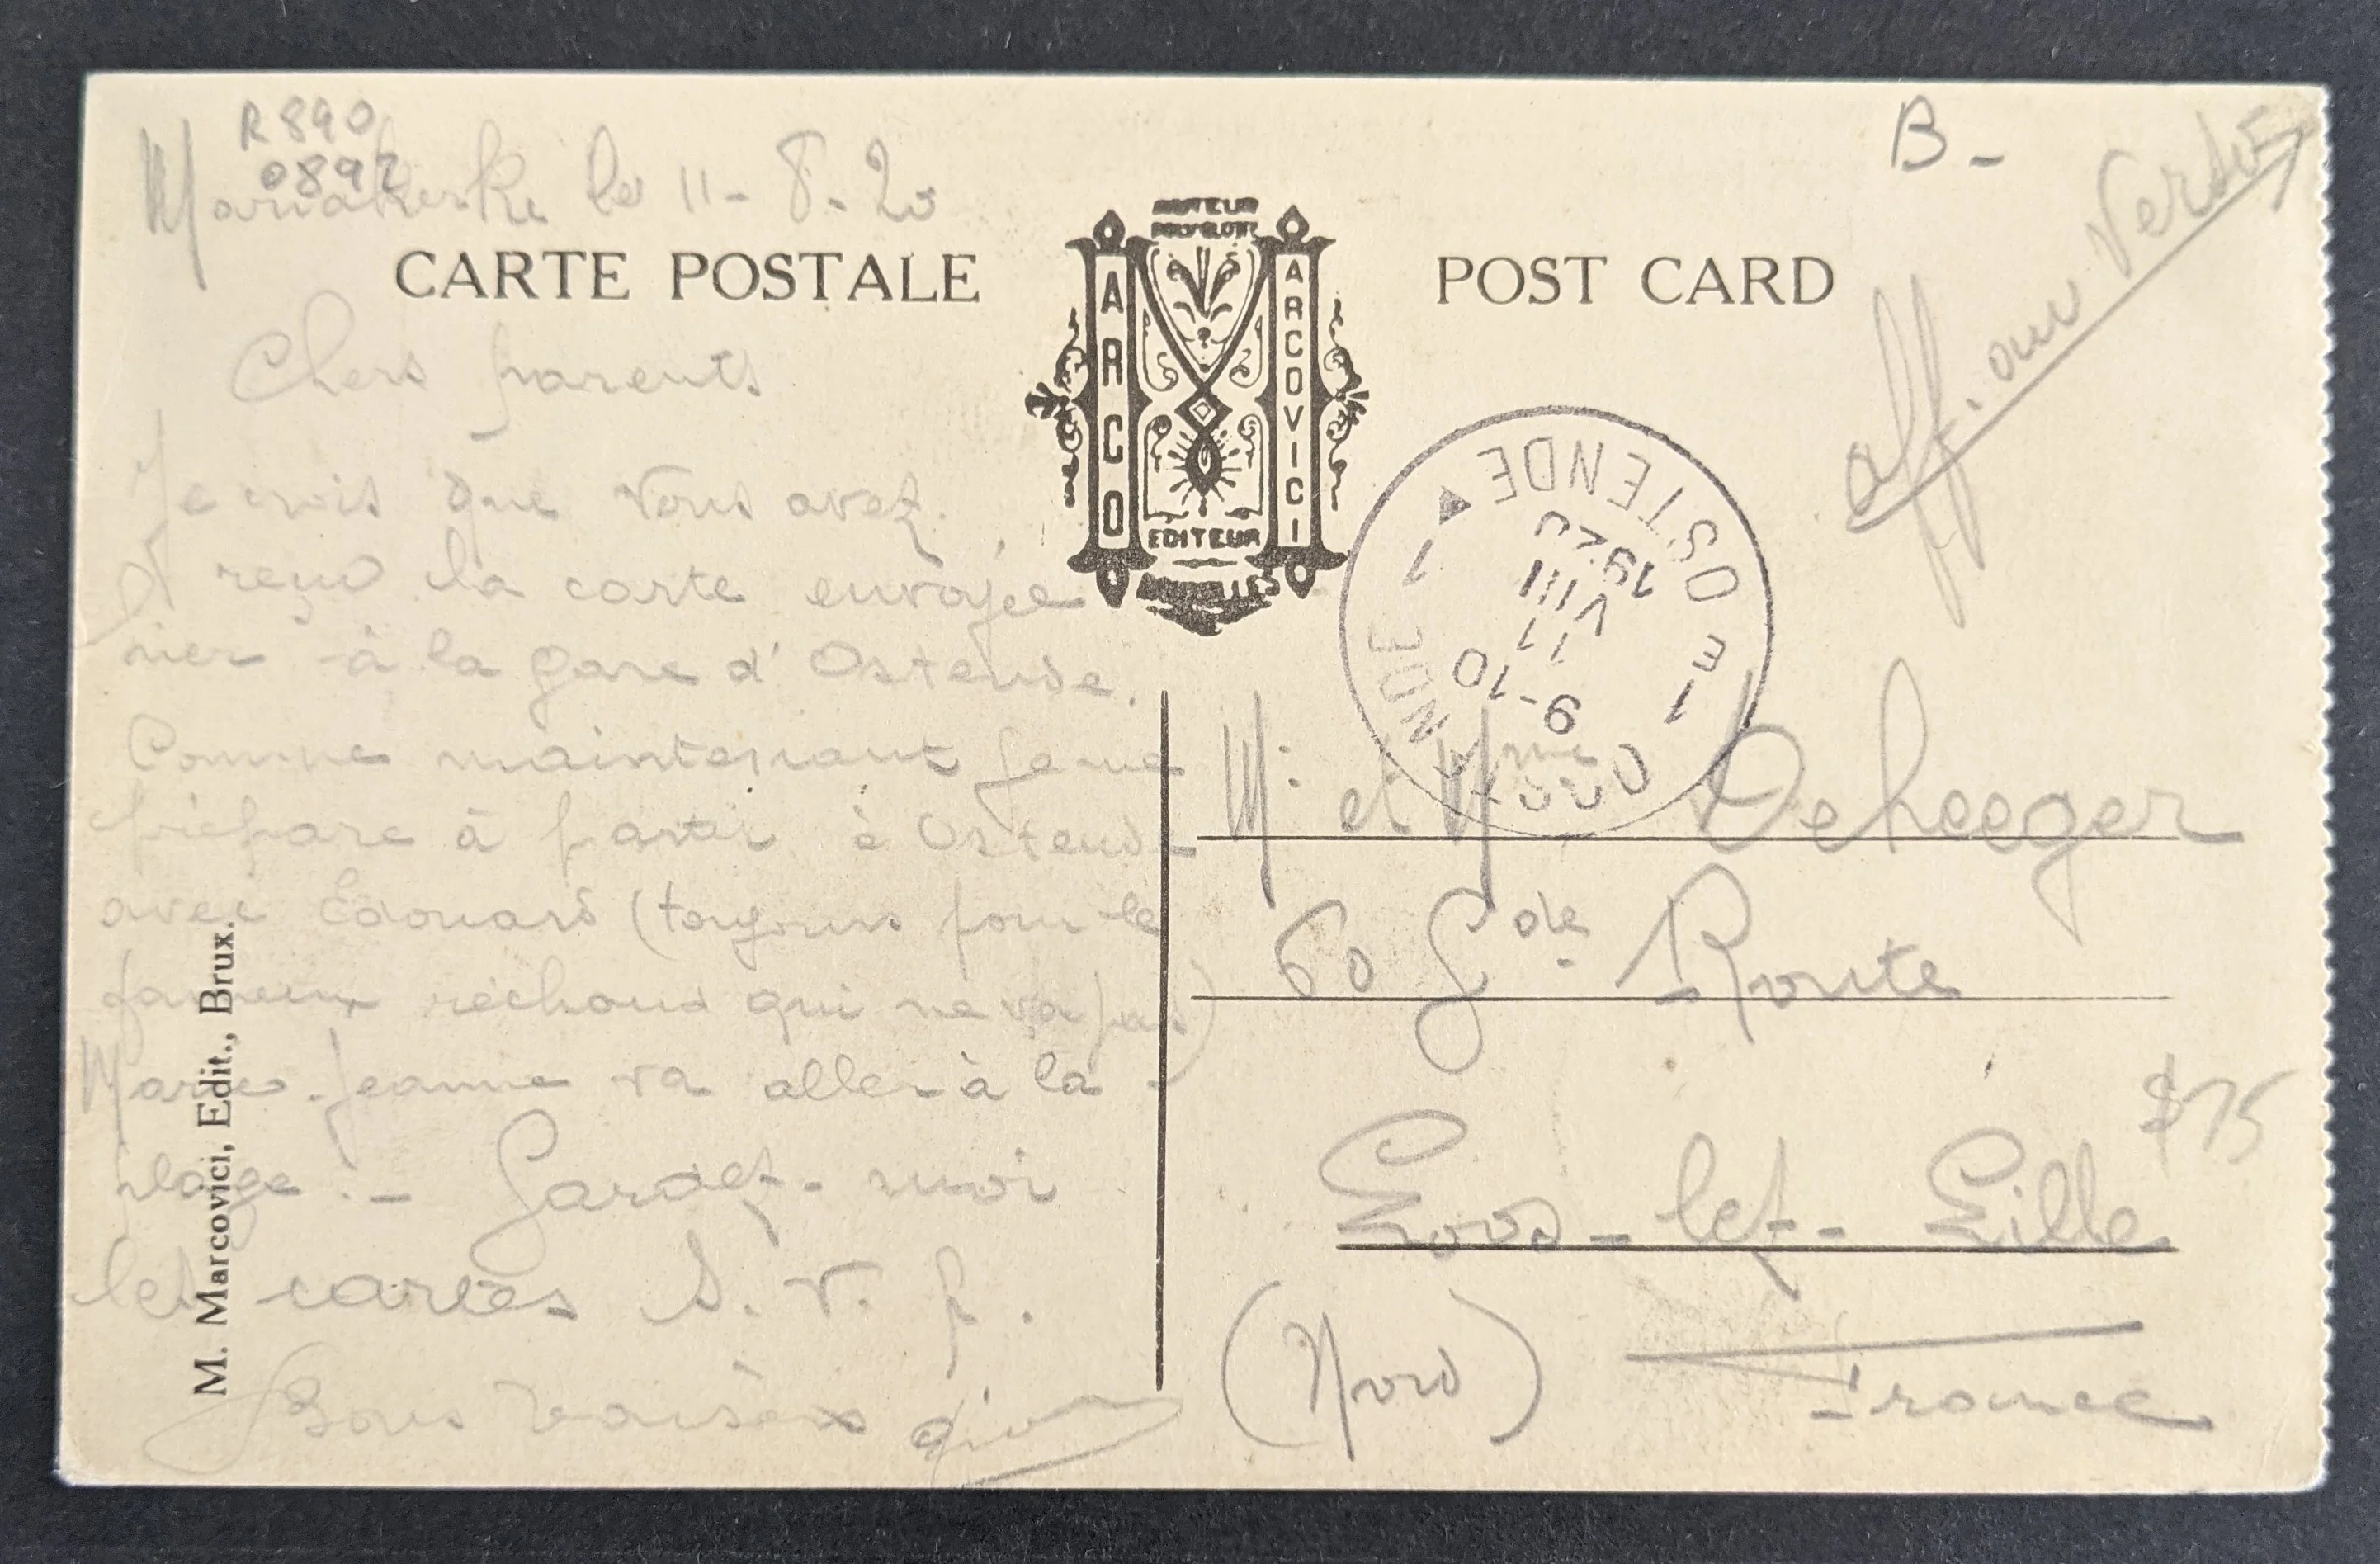 R 890
0892
Mariakerke le 11-8-20
CARTE POSTALE
Chers parents
Je crois que vous avez
reçu la carte envoyée
hier à la gare d'Ostende.
Comme maintenant je me
prépare à partir à Ostende
avec Edouard (toujours pour le
fameux réchaud qui ne va pas)
Marie-Jeanne va aller à la
plage. - Gardez-moi
les cartes S. V. p.
Bons baisers
M. Marcovici, Edit., Brux.
POLYGLOTTE
ARCO
ARCOVICI
EDITEUR
BRUXELLES
POST CARD
B-
aff. au Verso
OSTENDE 1
OOSTENDE 1
1 E
9-10
11
VIII
1920
Mr et Mme Deheeger
60 Gde Route
Loos-lez-Lille
(Nord)
France
$75